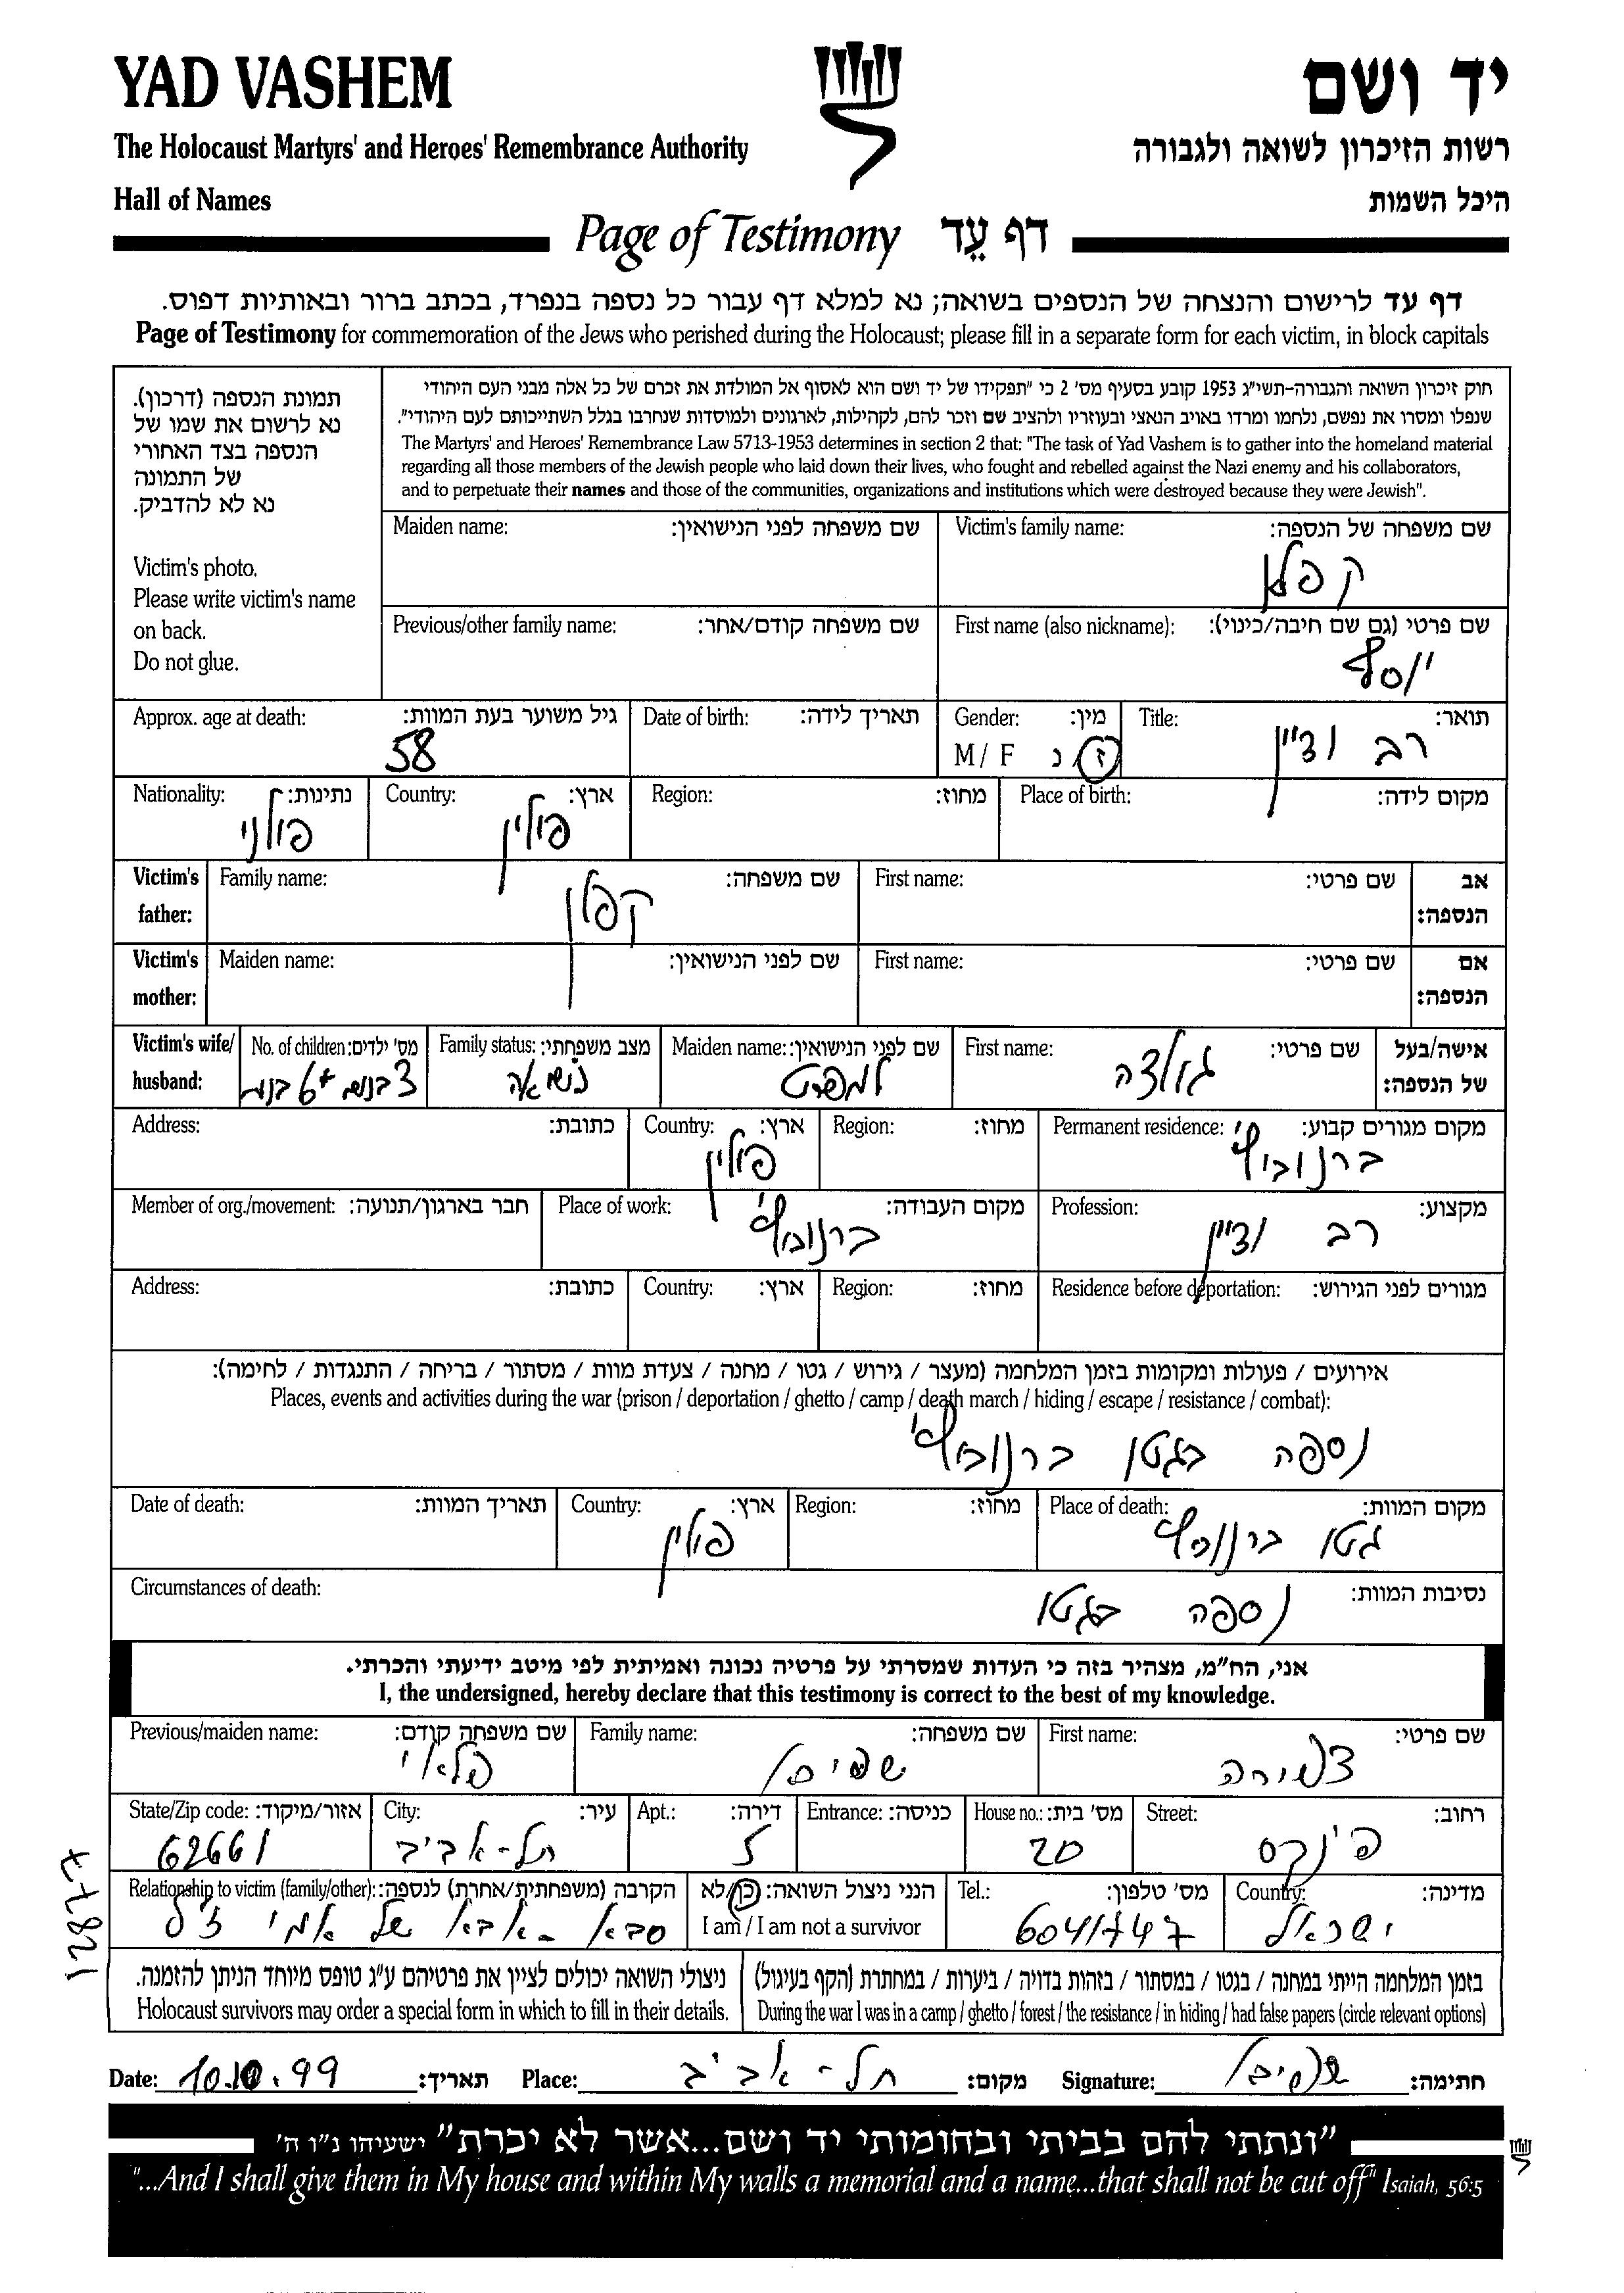 YAD VASHEM
יד ושם
The Holocaust Martyrs' and Heroes' Remembrance Authority
רשות הזיכרון לשואה ולגבורה
Hall of Names
היכל השמות
Page of Testimony דף עֵד
דף עד לרישום והנצחה של הנספים בשואה; נא למלא דף עבור כל נספה בנפרד, בכתב ברור ובאותיות דפוס.
Page of Testimony for commemoration of the Jews who perished during the Holocaust; please fill in a separate form for each victim, in block capitals
תמונת הנספה (דרכון).
נא לרשום את שמו של
הנספה בצד האחורי
של התמונה
נא לא להדביק.
Victim's photo.
Please write victim's name
on back.
Do not glue.
חוק זיכרון השואה והגבורה-תשי"ג 1953 קובע בסעיף מס' 2 כי "תפקידו של יד ושם הוא לאסוף אל המולדת את זכרם של כל אלה מבני העם היהודי
שנפלו ומסרו את נפשם, נלחמו ומרדו באויב הנאצי ובעוזריו ולהציב שם וזכר להם, לקהילות, לארגונים ולמוסדות שנחרבו בגלל השתייכותם לעם היהודי".
The Martyrs' and Heroes' Remembrance Law 5713-1953 determines in section 2 that: "The task of Yad Vashem is to gather into the homeland material
regarding all those members of the Jewish people who laid down their lives, who fought and rebelled against the Nazi enemy and his collaborators,
and to perpetuate their names and those of the communities, organizations and institutions which were destroyed because they were Jewish".
Maiden name: שם משפחה לפני הנישואין:
Victim's family name: שם משפחה של הנספה:
קפלן
Previous/other family name: שם משפחה קודם/אחר:
First name (also nickname): שם פרטי (גם שם חיבה/כינוי):
יוסף
Approx. age at death: גיל משוער בעת המוות:
58
Date of birth: תאריך לידה:
Gender: מין:
M / F ז/נ
Title: תואר:
רב ודיין
Nationality: נתינות:
פולני
Country: ארץ:
פולין
Region: מחוז:
Place of birth: מקום לידה:
Victim's father:
Family name: שם משפחה:
קפלן
First name: שם פרטי:
אב הנספה:
Victim's mother:
Maiden name: שם לפני הנישואין:
First name: שם פרטי:
אם הנספה:
Victim's wife/ husband:
No. of children: מס' ילדים:
בנות
Family status: מצב משפחתי:
נשואה
Maiden name: שם לפני הנישואין:
First name: שם פרטי:
גולדה
אישה/בעל של הנספה:
Address: כתובת:
Country: ארץ:
פולין
Region: מחוז:
Permanent residence: מקום מגורים קבוע:
ברנוביץ'
Member of org./movement: חבר בארגון/תנועה:
Place of work: מקום העבודה:
ברנוביץ'
Profession: מקצוע:
רב ודיין
Address: כתובת:
Country: ארץ:
Region: מחוז:
Residence before deportation: מגורים לפני הגירוש:
אירועים / פעולות ומקומות בזמן המלחמה (מעצר / גירוש / גטו / מחנה / צעדת מוות / מסתור / בריחה / התנגדות / לחימה):
Places, events and activities during the war (prison / deportation / ghetto / camp / death march / hiding / escape / resistance / combat):
נספה בגטו ברנוביץ'
Date of death: תאריך המוות:
Country: ארץ:
פולין
Region: מחוז:
Place of death: מקום המוות:
גטו ברנוביץ
Circumstances of death: נסיבות המוות:
נספה בגטו
אני, הח"מ, מצהיר בזה כי העדות שמסרתי על פרטיה נכונה ואמיתית לפי מיטב ידיעתי והכרתי.
I, the undersigned, hereby declare that this testimony is correct to the best of my knowledge.
Previous/maiden name: שם משפחה קודם:
Family name: שם משפחה:
First name: שם פרטי:
State/Zip code: אזור/מיקוד:
62661
City: עיר:
תל-אביב
Apt.: דירה:
5
Entrance: כניסה:
House no.: מס' בית:
20
Street: רחוב:
פינקס
Relationship to victim (family/other): הקרבה (משפחתית/אחרת) לנספה:
סבא - אבא של אמי ז"ל
הנני ניצול השואה: כן/לא
I am / I am not a survivor
Tel.: מס' טלפון:
6041747
Country: מדינה:
ישראל
ניצולי השואה יכולים לציין את פרטיהם ע"ג טופס מיוחד הניתן להזמנה.
Holocaust survivors may order a special form in which to fill in their details.
בזמן המלחמה הייתי במחנה / בגטו / במסתור / בזהות בדויה / ביערות / במחתרת (הקף בעיגול)
During the war I was in a camp / ghetto / forest / the resistance / in hiding / had false papers (circle relevant options)
Date: 10.10.99 תאריך:
Place: תל-אביב מקום:
Signature: חתימה:
"ונתתי להם בביתי ובחומותי יד ושם...אשר לא יכרת" ישעיהו נ"ו ה'
"...And I shall give them in My house and within My walls a memorial and a name...that shall not be cut off" Isaiah, 56:5